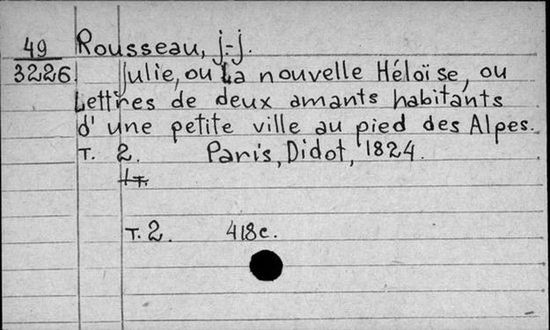 49
3226
Rousseau, j.-j.
Julie, ou la nouvelle Héloïse, ou
Lettres de deux amants habitants
d'une petite ville au pied des Alpes.
T. 2. Paris, Didot, 1824.
1 т.
т. 2. 418 с.